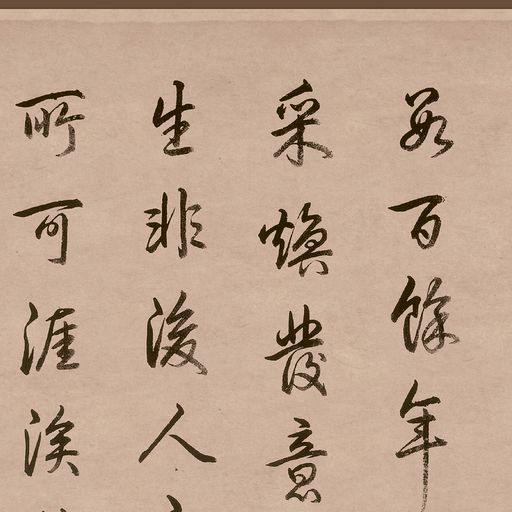 數百餘年
采煥發意
生非後人
所可涯涘